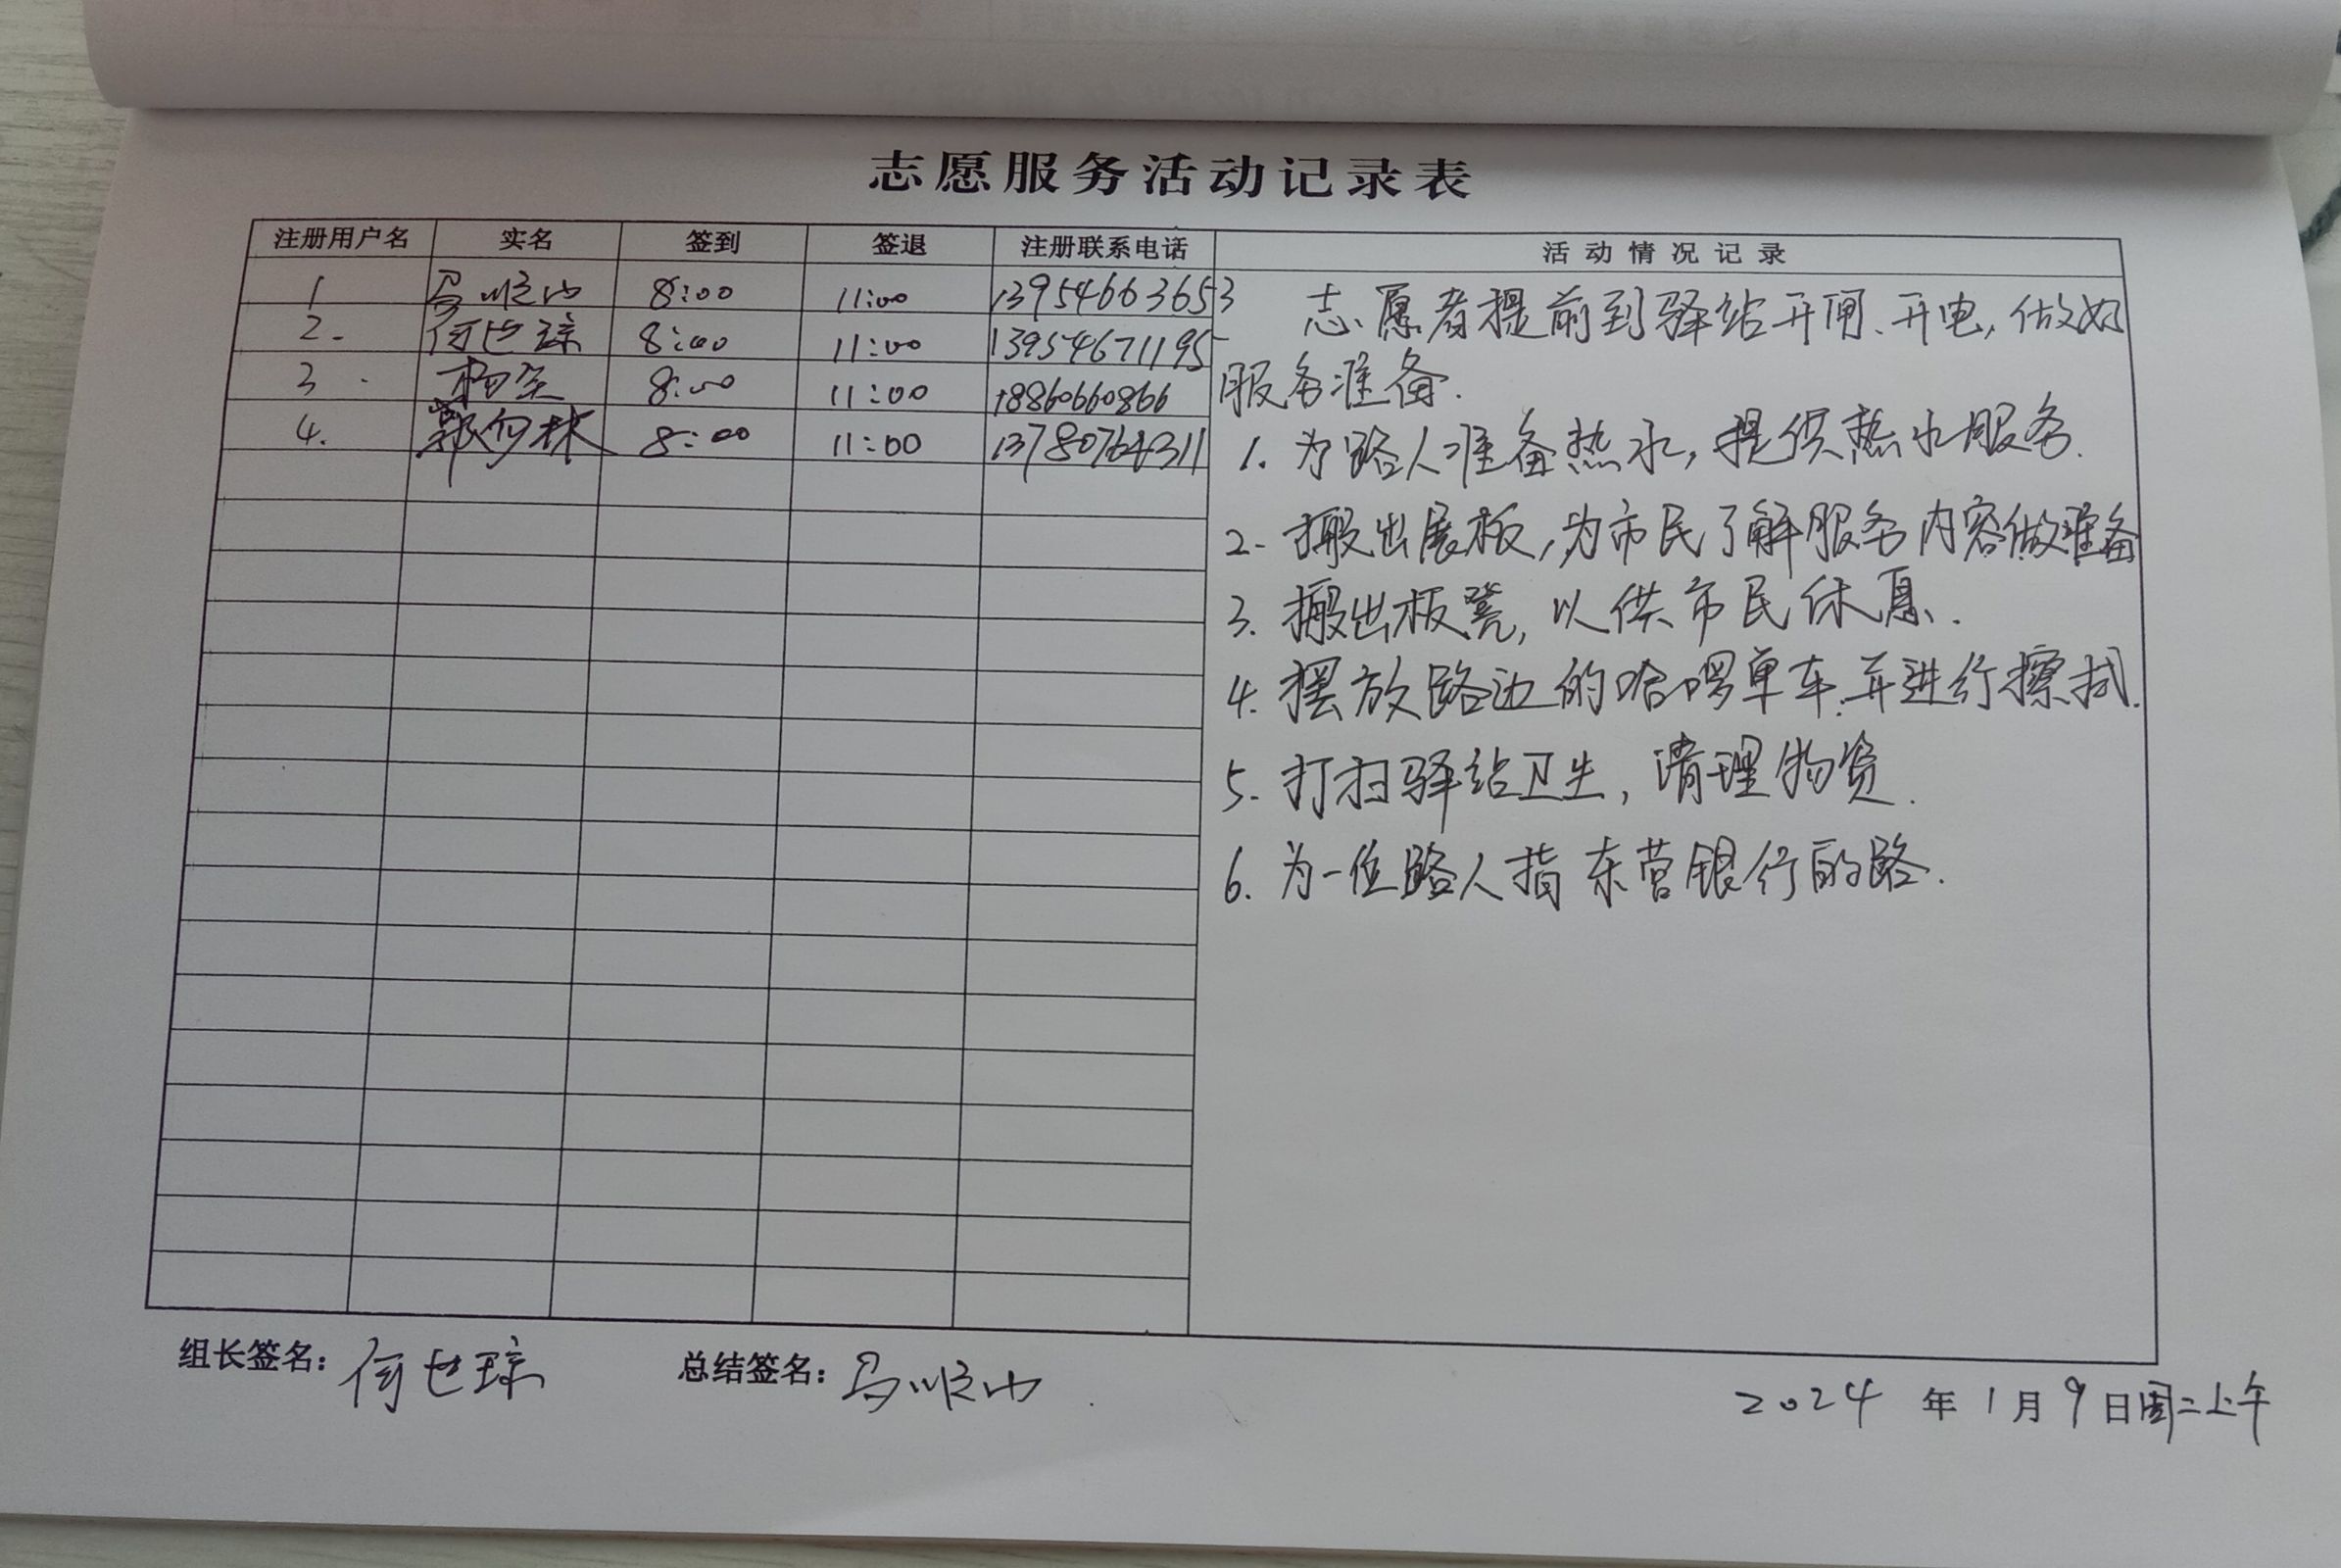 志愿服务活动记录表
注册用户名 实名 签到 签退 注册联系电话 活动情况记录
1 马顺山 8:00 11:00 13954663653
2. 何世琼 8:00 11:00 13954671195
3 杨 8:00 11:00 18860660866
4. 郭何林 8:00 11:00 13780764311
志愿者提前到驿站开闸、开电,做好
服务准备.
1. 为路人准备热水,提供热水服务.
2. 搬出展板,为市民了解服务内容做准备
3. 搬出板凳,以供市民休息.
4. 摆放路边的哈啰单车.并进行擦拭.
5. 打扫驿站卫生,清理物资.
6. 为一位路人指东营银行的路.
组长签名: 何世琼 总结签名: 马顺山
2024 年 1 月 9 日周二上午